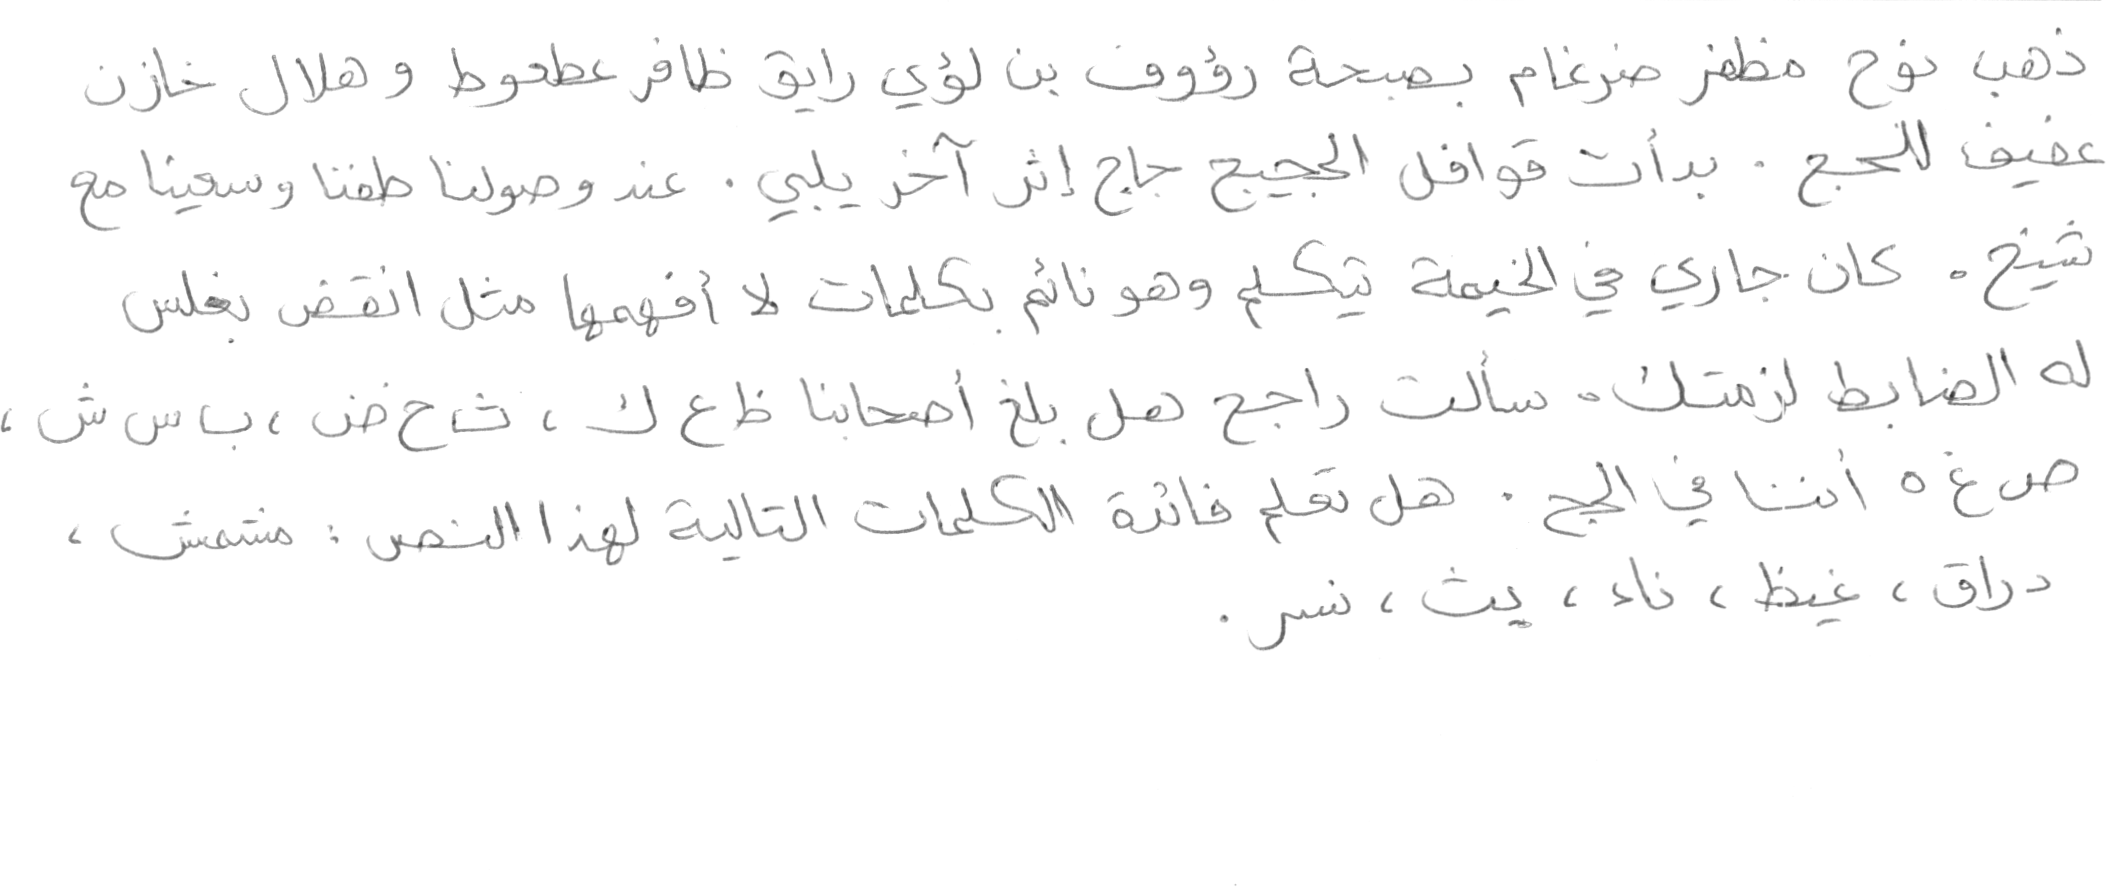 ذهب نوح مظفر ضرغام بصبحة رؤوف بن لؤي رايق ظافر عطعوط و هلال خازن
عفيف للحج . بدأت قوافل الحجيج حاج إثر آخر يلبي . عند وصولنا طفنا وسعينا مع
شيخ . كان جاري في الخيمة يتكلم وهو نائم بكلمات لا أفهمها مثل انقض بغلس
له الضابط لزمتك . سألت راجح هل بلغ أصحابنا ظ ع ك ، ث ح ض ، ب س ش ،
ص غ ه أننا في الحج . هل تعلم فائدة الكلمات التالية لهذا النص : مشمش ،
دراق ، غيظ ، ناء ، يث ، نسر .